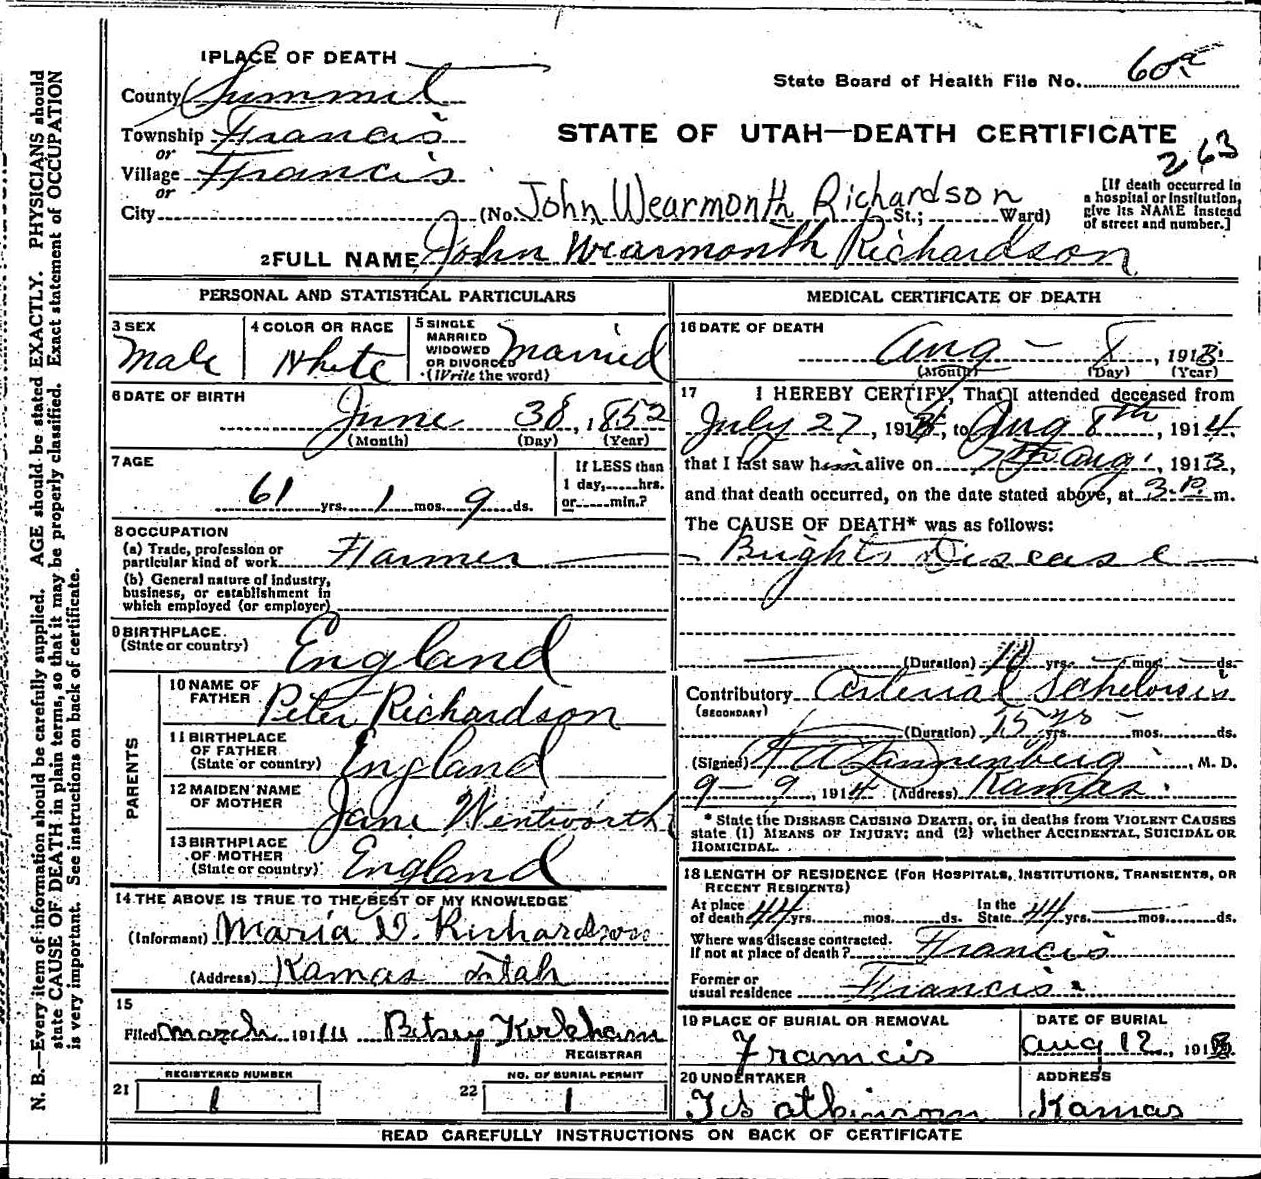 1 PLACE OF DEATH
State Board of Health File No. 60
County Summit
Township Francis
or
Village Francis
or
City
STATE OF UTAH—DEATH CERTIFICATE
263
(No. John Wearmonth Richardson St.; Ward)
[If death occurred in
a hospital or institution,
give its NAME instead
of street and number.]
2 FULL NAME John Wearmonth Richardson
PERSONAL AND STATISTICAL PARTICULARS
3 SEX Male
4 COLOR OR RACE White
5 SINGLE
MARRIED
WIDOWED
OR DIVORCED
(Write the word) Married
6 DATE OF BIRTH
June 30, 1852
(Month) (Day) (Year)
7 AGE
61 yrs. 1 mos. 9 ds.
If LESS than
1 day,.....hrs.
or.....min.?
8 OCCUPATION
(a) Trade, profession or
particular kind of work Farmer
(b) General nature of industry,
business, or establishment in
which employed (or employer)
9 BIRTHPLACE
(State or country) England
PARENTS
10 NAME OF
FATHER Peter Richardson
11 BIRTHPLACE
OF FATHER
(State or country) England
12 MAIDEN NAME
OF MOTHER Jane Wentworth
13 BIRTHPLACE
OF MOTHER
(State or country) England
14 THE ABOVE IS TRUE TO THE BEST OF MY KNOWLEDGE
(Informant) Maria D. Richardson
(Address) Kamas Utah
15
Filed March 1914 Betsy Kirkham
REGISTRAR
REGISTERED NUMBER
21 1
NO. OF BURIAL PERMIT
22 1
MEDICAL CERTIFICATE OF DEATH
16 DATE OF DEATH
Aug - 8, 1913
(Month) (Day) (Year)
17 I HEREBY CERTIFY, That I attended deceased from
July 27, 191 , to Aug 8th, 1914,
that I last saw him alive on 7th Aug, 1913,
and that death occurred, on the date stated above, at 3 P m.
The CAUSE OF DEATH* was as follows:
Brights Disease
(Duration) 10 yrs. mos. ds.
Contributory Arterial Schelorsis
(SECONDARY)
(Duration) 15 yrs yrs. mos. ds.
(Signed) M. D.
9 - 9, 1914 (Address) Kamas
* State the DISEASE CAUSING DEATH, or, in deaths from VIOLENT CAUSES
state (1) MEANS OF INJURY; and (2) whether ACCIDENTAL, SUICIDAL OR
HOMICIDAL.
18 LENGTH OF RESIDENCE (FOR HOSPITALS, INSTITUTIONS, TRANSIENTS, OR
RECENT RESIDENTS)
At place
of death 44 yrs. mos. ds.
In the
State 44 yrs. mos. ds.
Where was disease contracted.
If not at place of death? Francis
Former or
usual residence Francis.
19 PLACE OF BURIAL OR REMOVAL
Francis
DATE OF BURIAL
Aug 12, 1913
20 UNDERTAKER
Atkinson
ADDRESS
Kamas
READ CAREFULLY INSTRUCTIONS ON BACK OF CERTIFICATE
N. B.—Every item of information should be carefully supplied. AGE should be stated EXACTLY. PHYSICIANS should
state CAUSE OF DEATH in plain terms, so that it may be properly classified. Exact statement of OCCUPATION
is very important. See instructions on back of certificate.